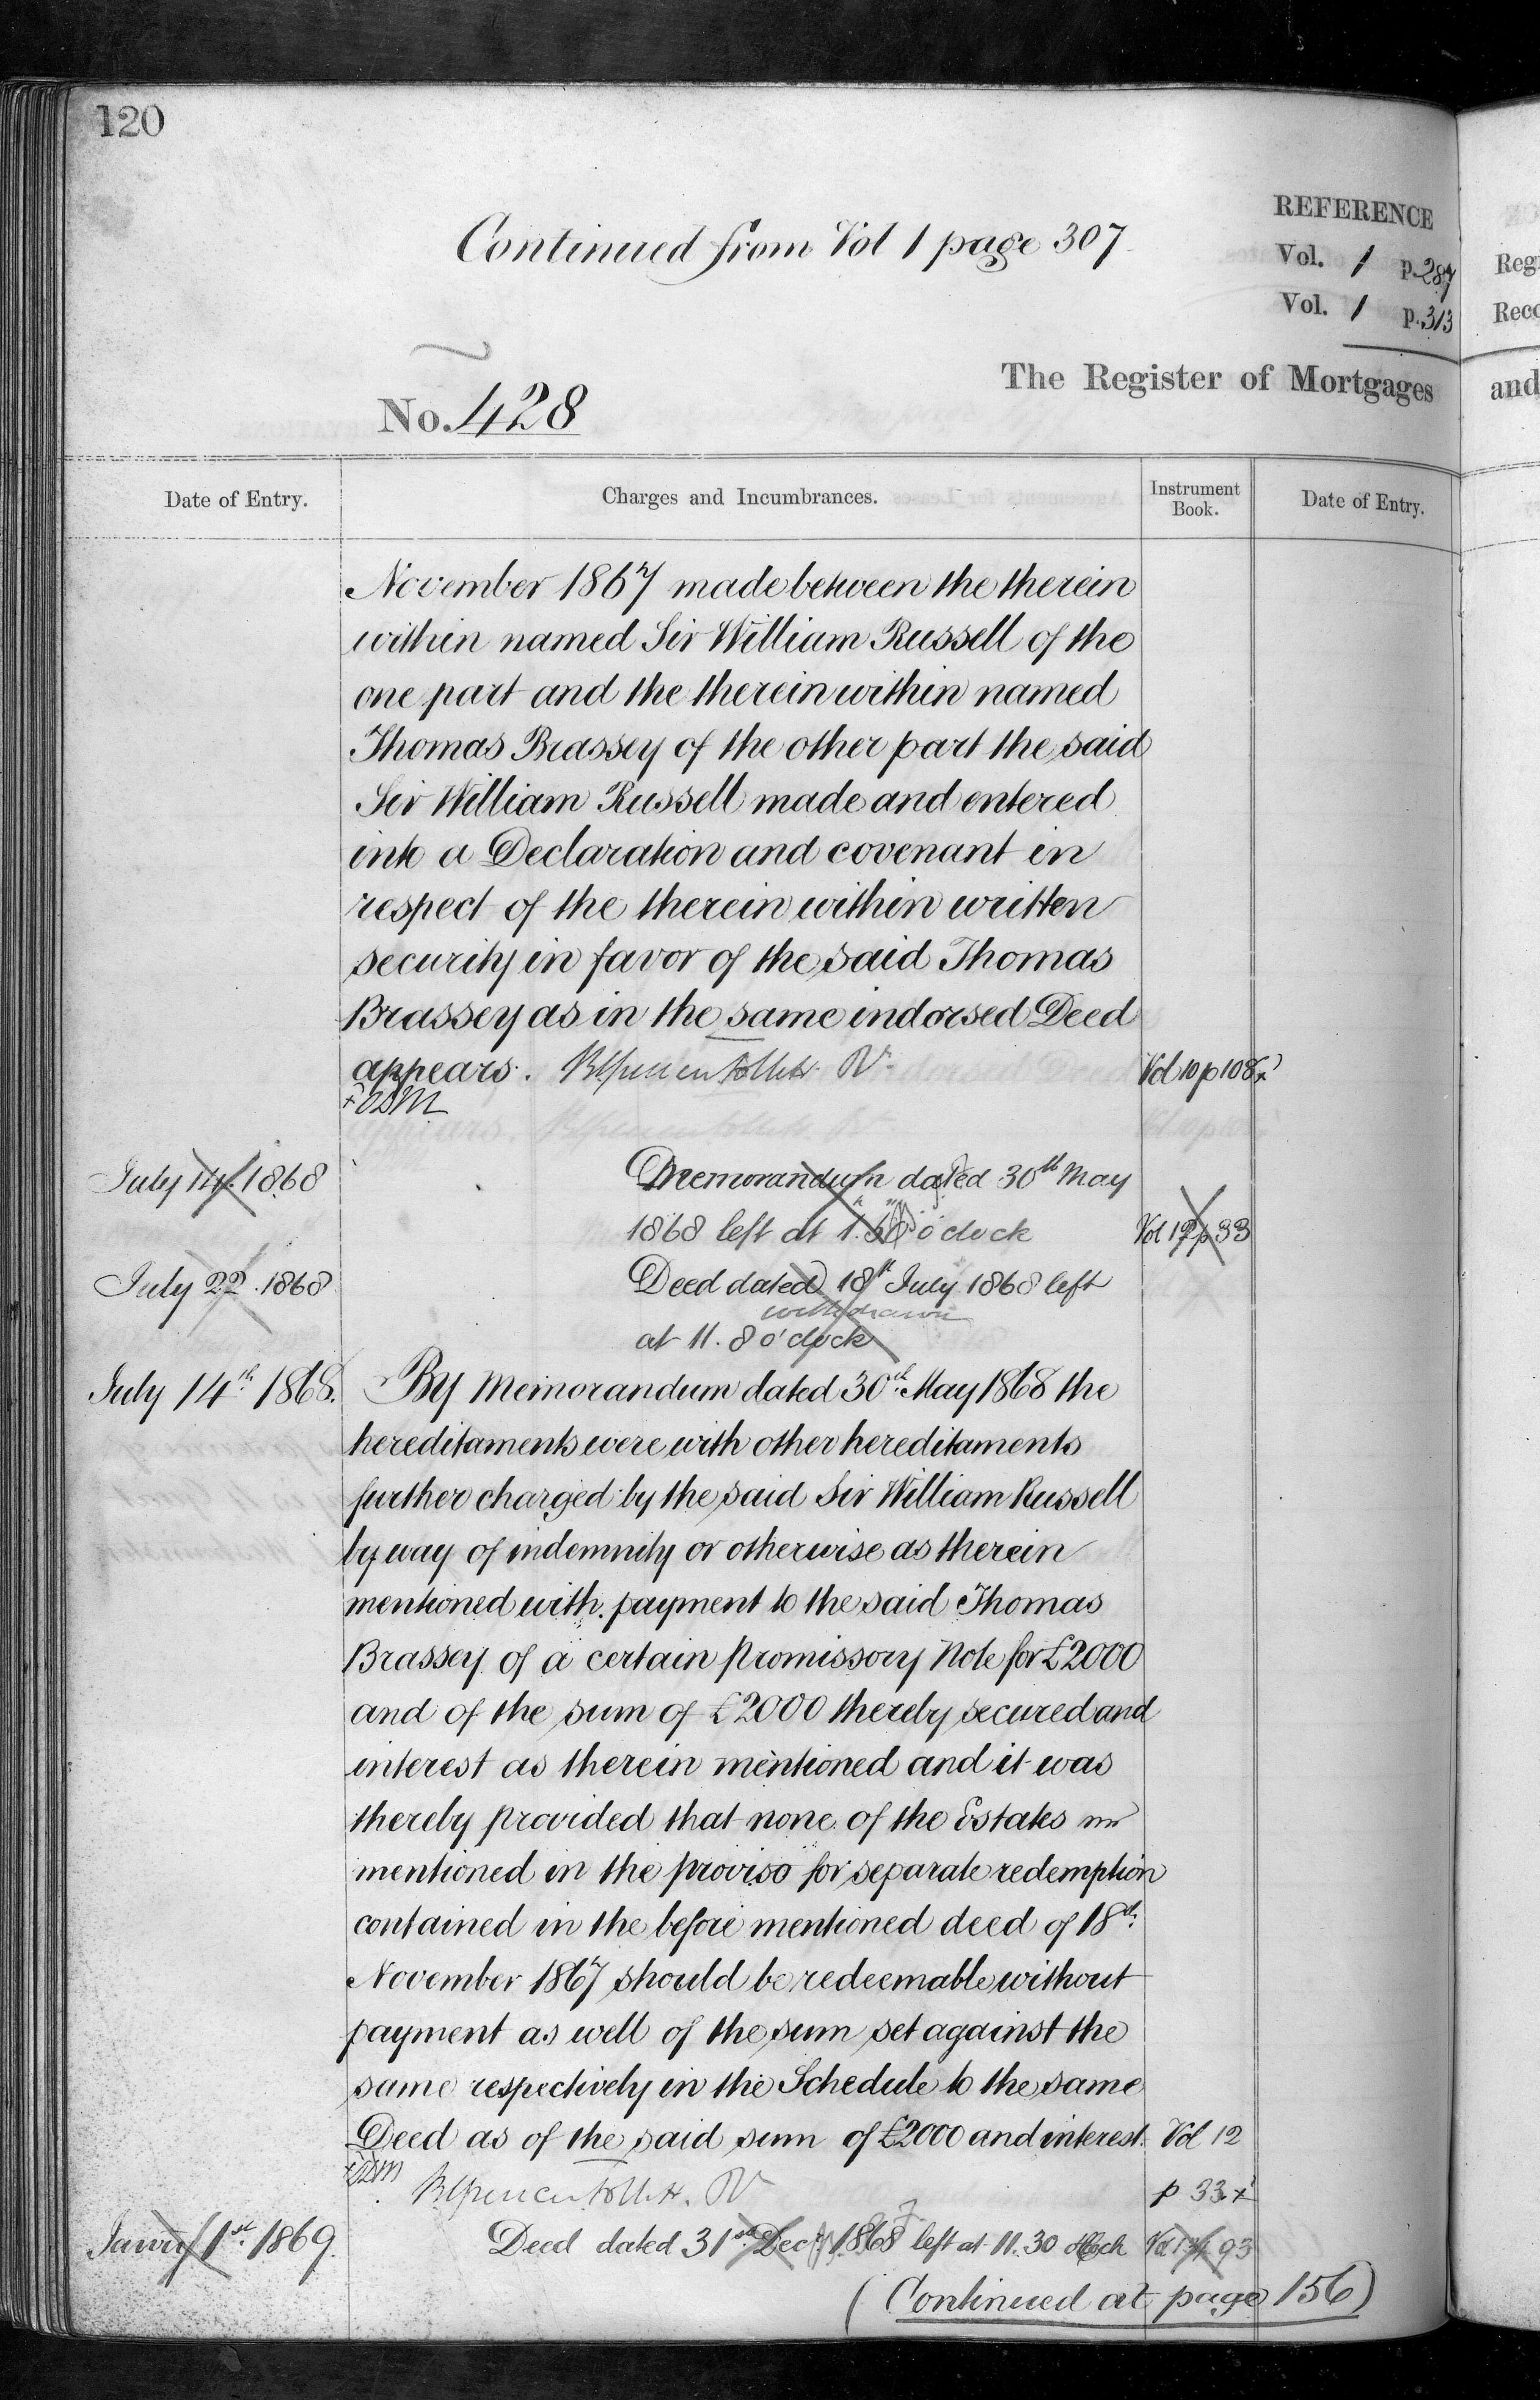 120
Continued from Vol 1 page 307
REFERENCE
Vol. 1 p. 287
Vol. 1 p. 313
The Register of Mortgages
No. 428
Date of Entry. Charges and Incumbrances. Instrument Book. Date of Entry.
November 1867 made between the therein
within named Sir William Russell of the
one part and the therein within named
Thomas Brassey of the other part the said
Sir William Russell made and entered
into a Declaration and covenant in
respect of the therein within written
security in favor of the said Thomas
Brassey as in the same indorsed Deed
appears. Vol 10 p 108 x
July 14. 1868 Memorandum dated 30th May
1868 left at o'clock Vol 12 p 33
July 22. 1868 Deed dated 18th July 1868 left
withdrawn
at 11. 8 o'clock
July 14th 1868. By Memorandum dated 30th May 1868 the
hereditaments were with other hereditaments
further charged by the said Sir William Russell
by way of indemnity or otherwise as therein
mentioned with payment to the said Thomas
Brassey of a certain Promissory Note for £2000
and of the sum of £2000 thereby secured and
interest as therein mentioned and it was
thereby provided that none of the Estates
mentioned in the proviso for separate redemption
contained in the before mentioned deed of 18th
November 1867 should be redeemable without
payment as well of the sum set against the
same respectively in the Schedule to the same
Deed as of the said sum of £2000 and interest. Vol 12
p 33 x
Janry 1st 1869. Deed dated 31st Decr 1868 left at 11.30 oClock Vol 13 p 93
(Continued at page 156)
Reg
Reco
and